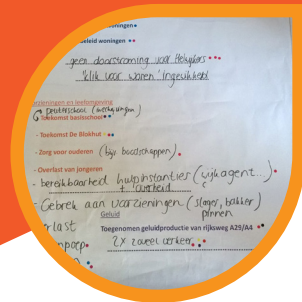 ningen
eleid woningen
geen doorstroming voor Heknjkers
'klik voor wonen' ingewikkeld
orzieningen en leefomgeving
peuterschool (inschrijvingen)
- Toekomst basisschool
- Toekomst De Blokhut
- Zorg voor ouderen (bijv. boodschappen)
- Overlast van jongeren
- bereikbaarheid hulpinstanties (wijkagent...)
+ overheid
- Gebrek aan voorzieningen (slager, bakker)
pinnen
Geluid
rlast
Toegenomen geluidproductie van rijksweg A29/A4
npoep
2x zoveel verkeer